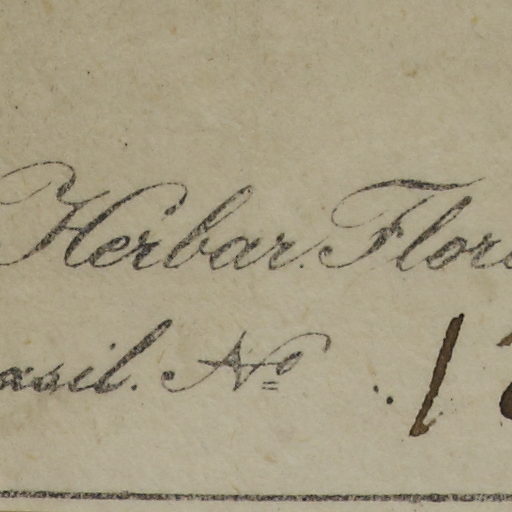 Herbar. Flor
asil. Nº 1